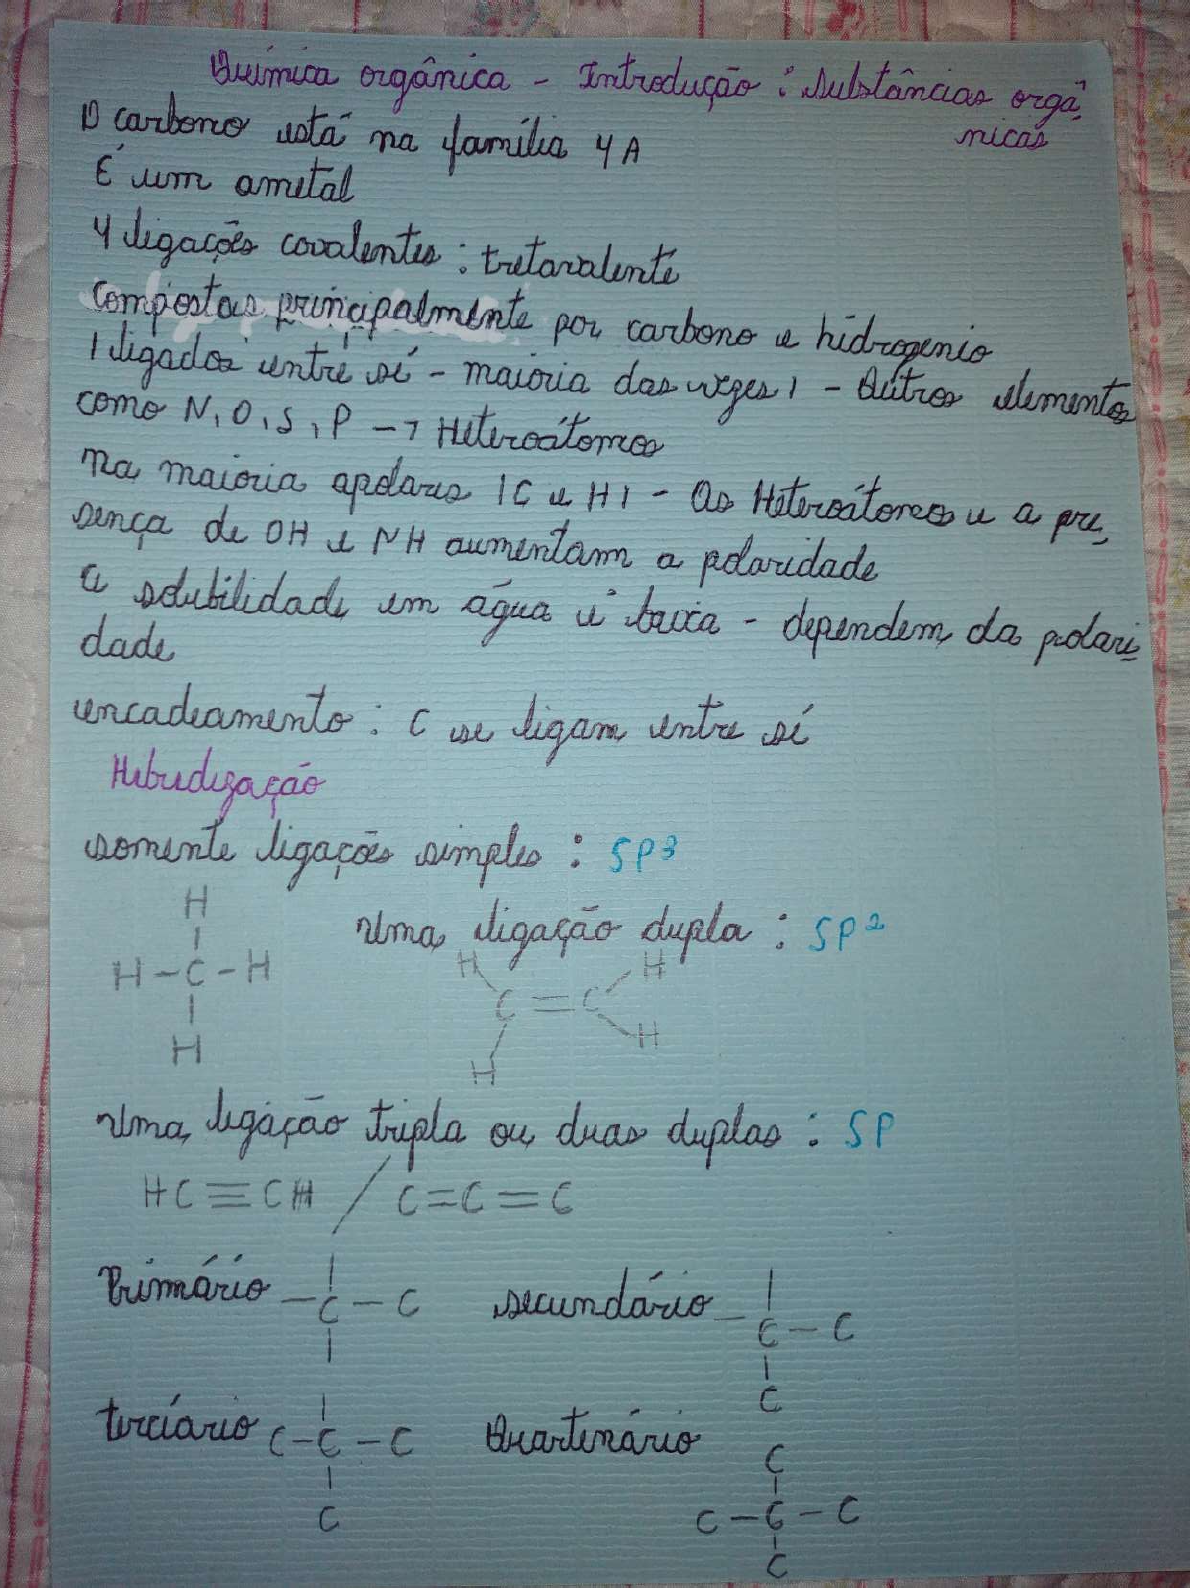 Química orgânica - Introdução : substâncias orgâ
nicas
O carbono está na família 4A
É um ametal
4 ligações covalentes : tretavalente
compostas principalmente por carbono e hidrogenio
(ligados entre sí - maioria das vezes) - Outros elementos
como N, O, S, P → Heteroátomos
na maioria apolares (C e H) - Os Heteroátomos e a pre
sença de OH e NH aumentam a polaridade
a solubilidade em água é baixa - dependem da polari
dade
encadeamento : C se ligam entre sí
Hibridização
somente ligações simples : SP3
H
Uma ligação dupla : SP2
H - C - H
H
H H
C = C
H H
Uma ligação tripla ou duas duplas : SP
HC ≡ CH / C = C = C
Primário - C - C
secundário - C - C
C
terciário C - C - C
C
Quartenário
C
C - C - C
C